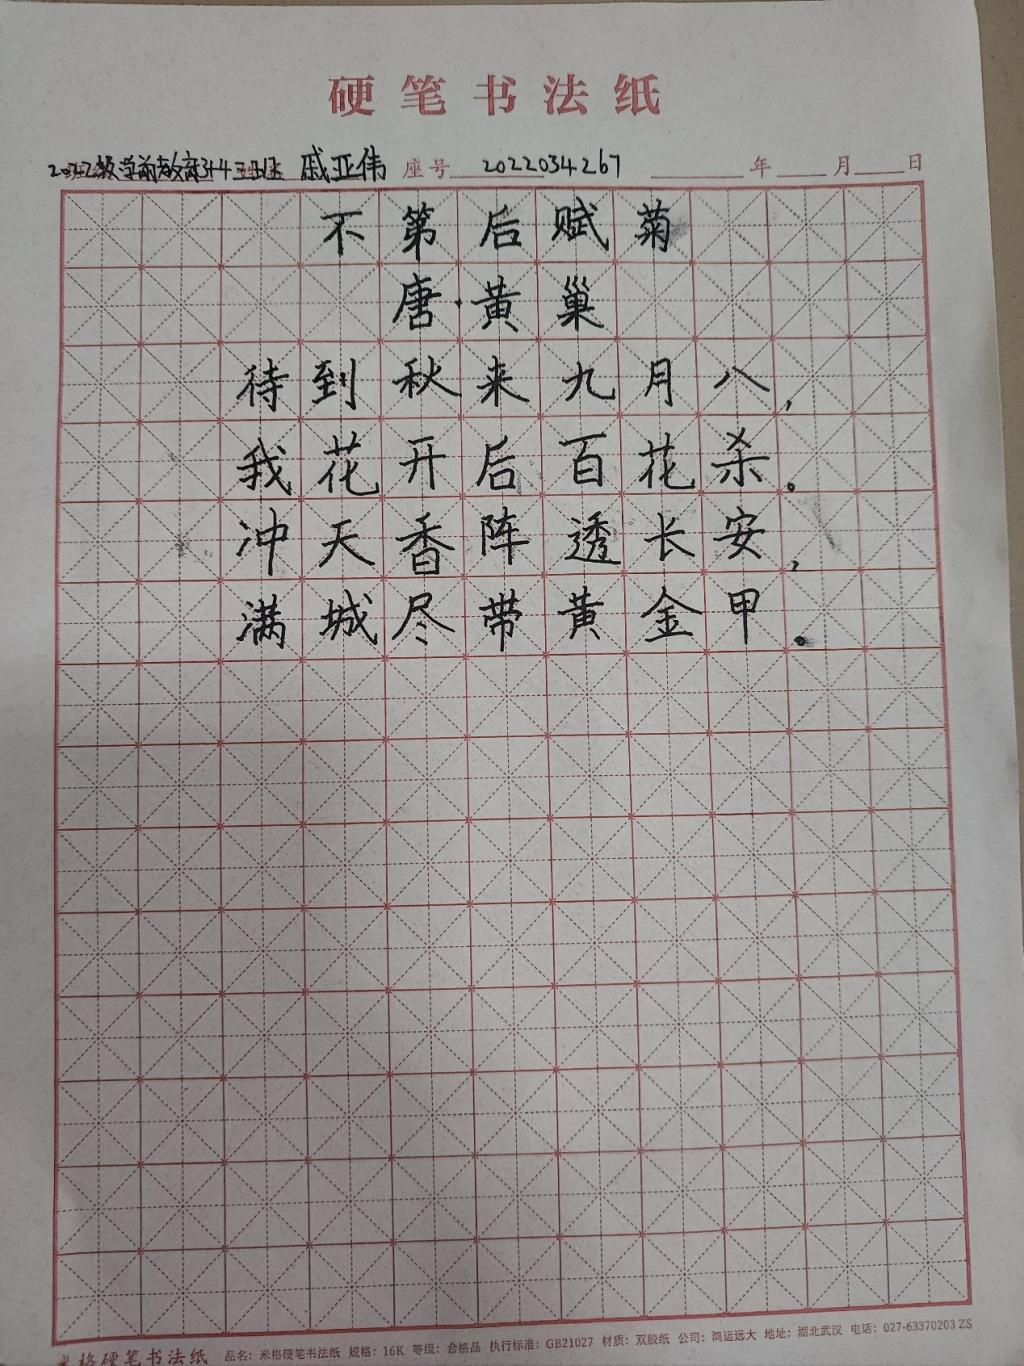 硬笔书法纸
2022级学前教育3+4三班 戚亚伟 座号 2022034267 年 月 日
不第后赋菊
唐·黄巢
待到秋来九月八,
我花开后百花杀。
冲天香阵透长安,
满城尽带黄金甲。
米格硬笔书法纸 品名: 米格硬笔书法纸 规格: 16K 等级: 合格品 执行标准: GB21027 材质: 双胶纸 公司: 鸿运远大 地址: 湖北武汉 电话: 027-63370203 ZS